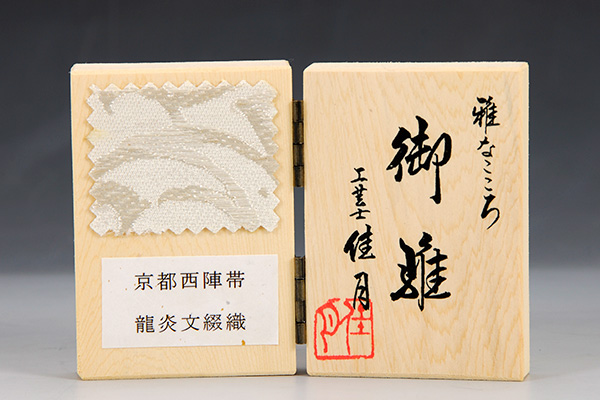 京都西陣帯
龍炎文綴織
雅なこころ
御雛
工芸士 佳月
佳月